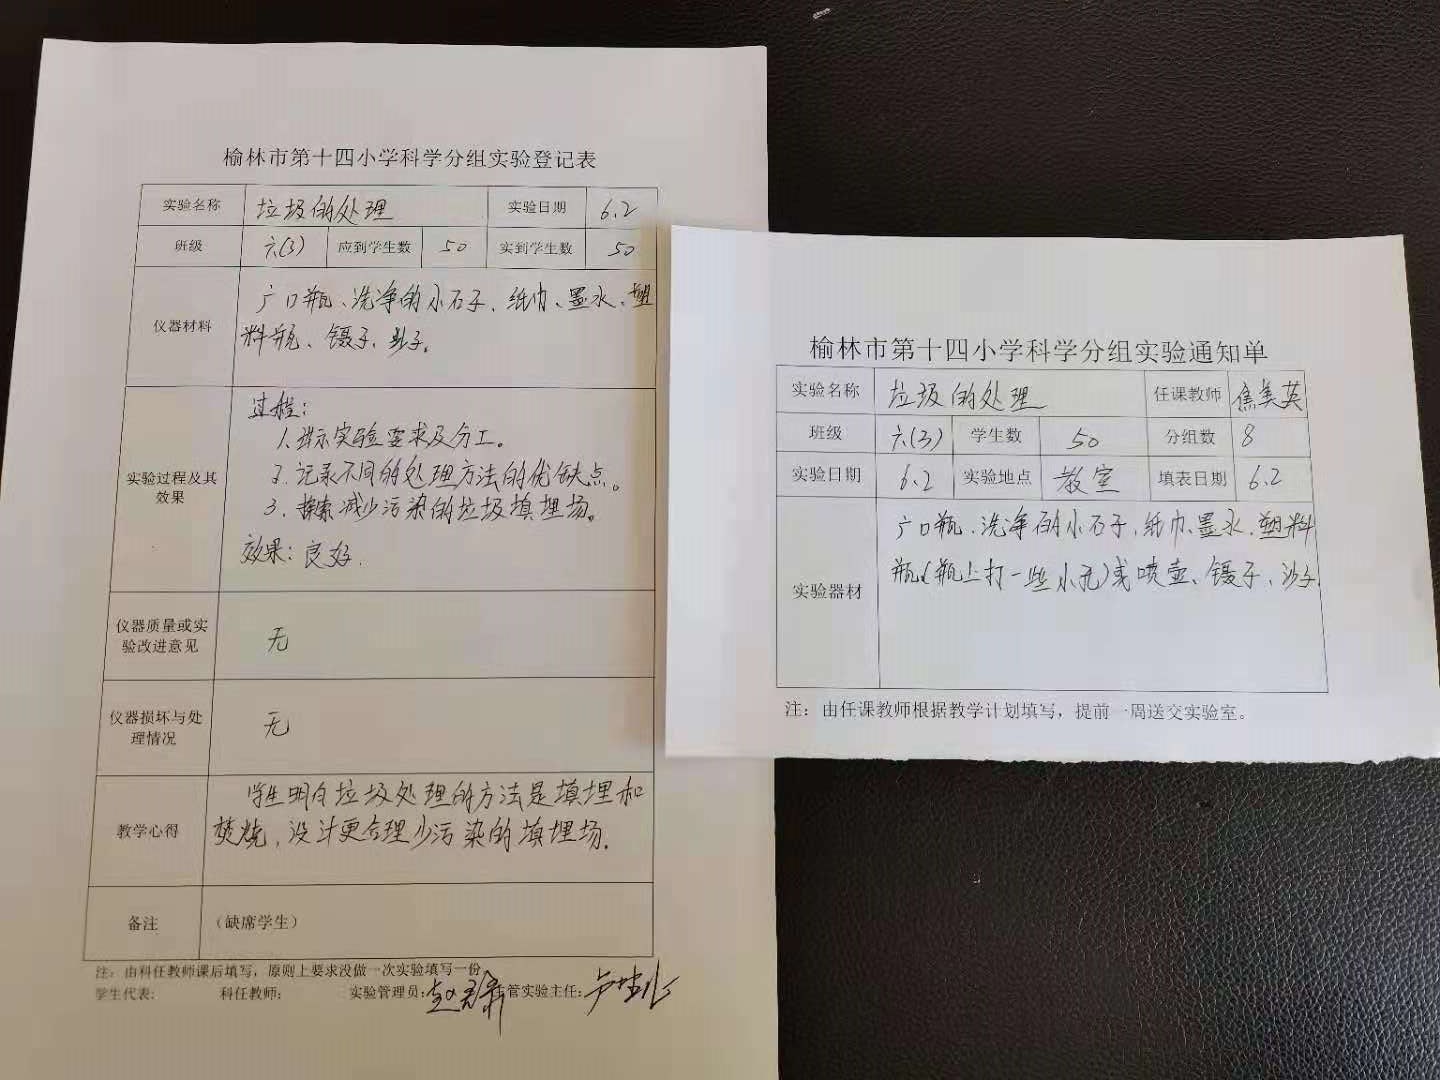 榆林市第十四小学科学分组实验登记表
实验名称 垃圾的处理 实验日期 6.2
班级 六(3) 应到学生数 50 实到学生数 50
仪器材料
广口瓶、洗净的小石子、纸巾、墨水、塑
料瓶、镊子、沙子。
实验过程及其
效果
过程:
1.提示实验要求及分工。
2.记录不同的处理方法的优缺点。
3.探索减少污染的垃圾填埋场。
效果:良好.
仪器质量或实
验改进意见
无
仪器损坏与处
理情况
无
教学心得
学生明白垃圾处理的方法是填埋和
焚烧,设计更合理少污染的填埋场.
备注 (缺席学生)
注:由科任教师课后填写,原则上要求没做一次实验填写一份
学生代表: 科任教师: 实验管理员: 管实验主任:
榆林市第十四小学科学分组实验通知单
实验名称 垃圾的处理 任课教师 焦美英
班级 六(3) 学生数 50 分组数 8
实验日期 6.2 实验地点 教室 填表日期 6.2
实验器材
广口瓶、洗净的小石子、纸巾、墨水、塑料
瓶(瓶上打一些小孔)或喷壶、镊子、沙子.
注:由任课教师根据教学计划填写,提前一周送交实验室。